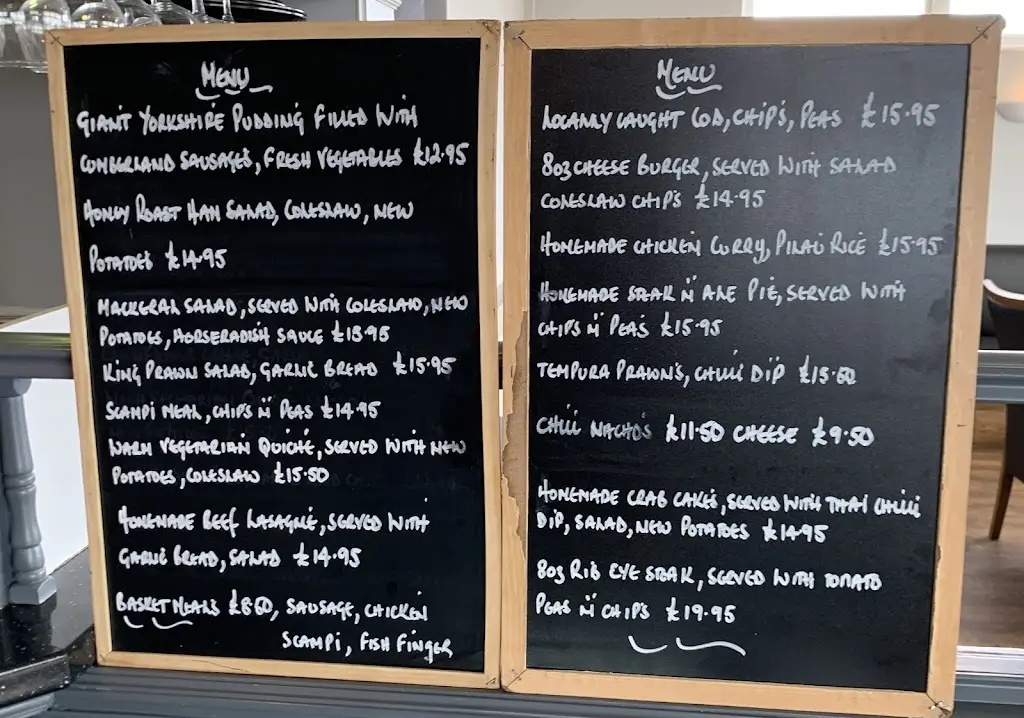 MENU
GIANT YORKSHIRE PUDDING FILLED WITH
CUMBERLAND SAUSAGE'S, FRESH VEGETABLES £12.95
HONEY ROAST HAM SALAD, COLESLAW, NEW
POTATOE'S £14.95
MACKERAL SALAD, SERVED WITH COLESLAW, NEW
POTATOES, HORSERADISH SAUCE £13.95
KING PRAWN SALAD, GARLIC BREAD £15.95
SCAMPI MEAL, CHIP'S N PEAS £14.95
WARM VEGETARIAN QUICHE, SERVED WITH NEW
POTATOES, COLESLAW £15.50
HOMEMADE BEEF LASAGNE, SERVED WITH
GARLIC BREAD, SALAD £14.95
BASKET MEALS £8.50, SAUSAGE, CHICKEN
SCAMPI, FISH FINGER
MENU
LOCALLY CAUGHT COD, CHIP'S, PEAS £15.95
8oz CHEESE BURGER, SERVED WITH SALAD
COLESLAW CHIP'S £14.95
HOMEMADE CHICKEN CURRY, PILAU RICE £15.95
HOMEMADE STEAK N ALE PIE, SERVED WITH
CHIP'S N PEA'S £15.95
TEMPURA PRAWN'S, CHILLI DIP £15.50
CHILLI NACHO'S £11.50 CHEESE £9.50
HOMEMADE CRAB CAKE'S, SERVED WITH THAI CHILLI
DIP, SALAD, NEW POTATOES £14.95
8oz RIB EYE STEAK, SERVED WITH TOMATO
PEAS N CHIP'S £19.95